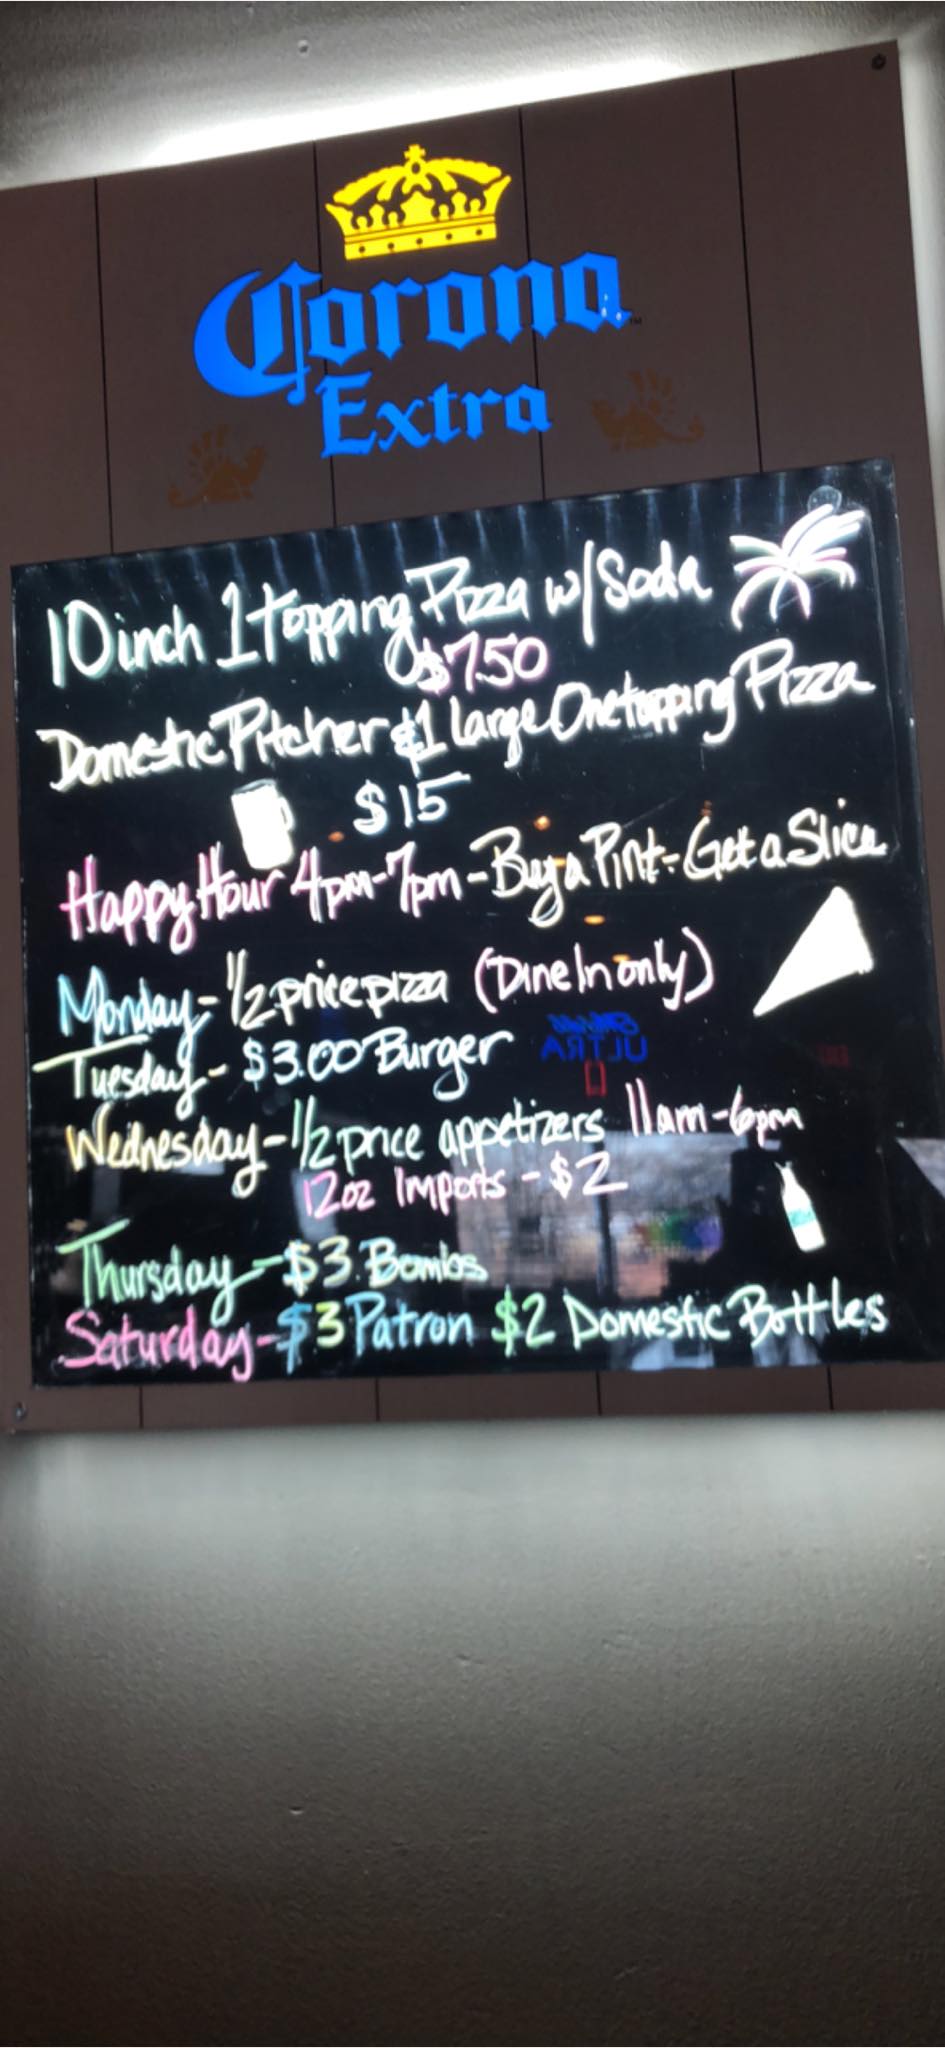 Corona
Extra
10 inch 1 topping Pizza w/ Soda
$7.50
Domestic Pitcher & 1 large One topping Pizza
$15
Happy Hour 4pm-7pm - Buy a Pint - Get a Slice
Monday - 1/2 price pizza (Dine In only)
Tuesday - $3.00 Burger
ULTRA
Wednesday - 1/2 price appetizers 11am-6pm
12oz Imports - $2
Thursday - $3 Bombs
Saturday - $3 Patron $2 Domestic Bottles